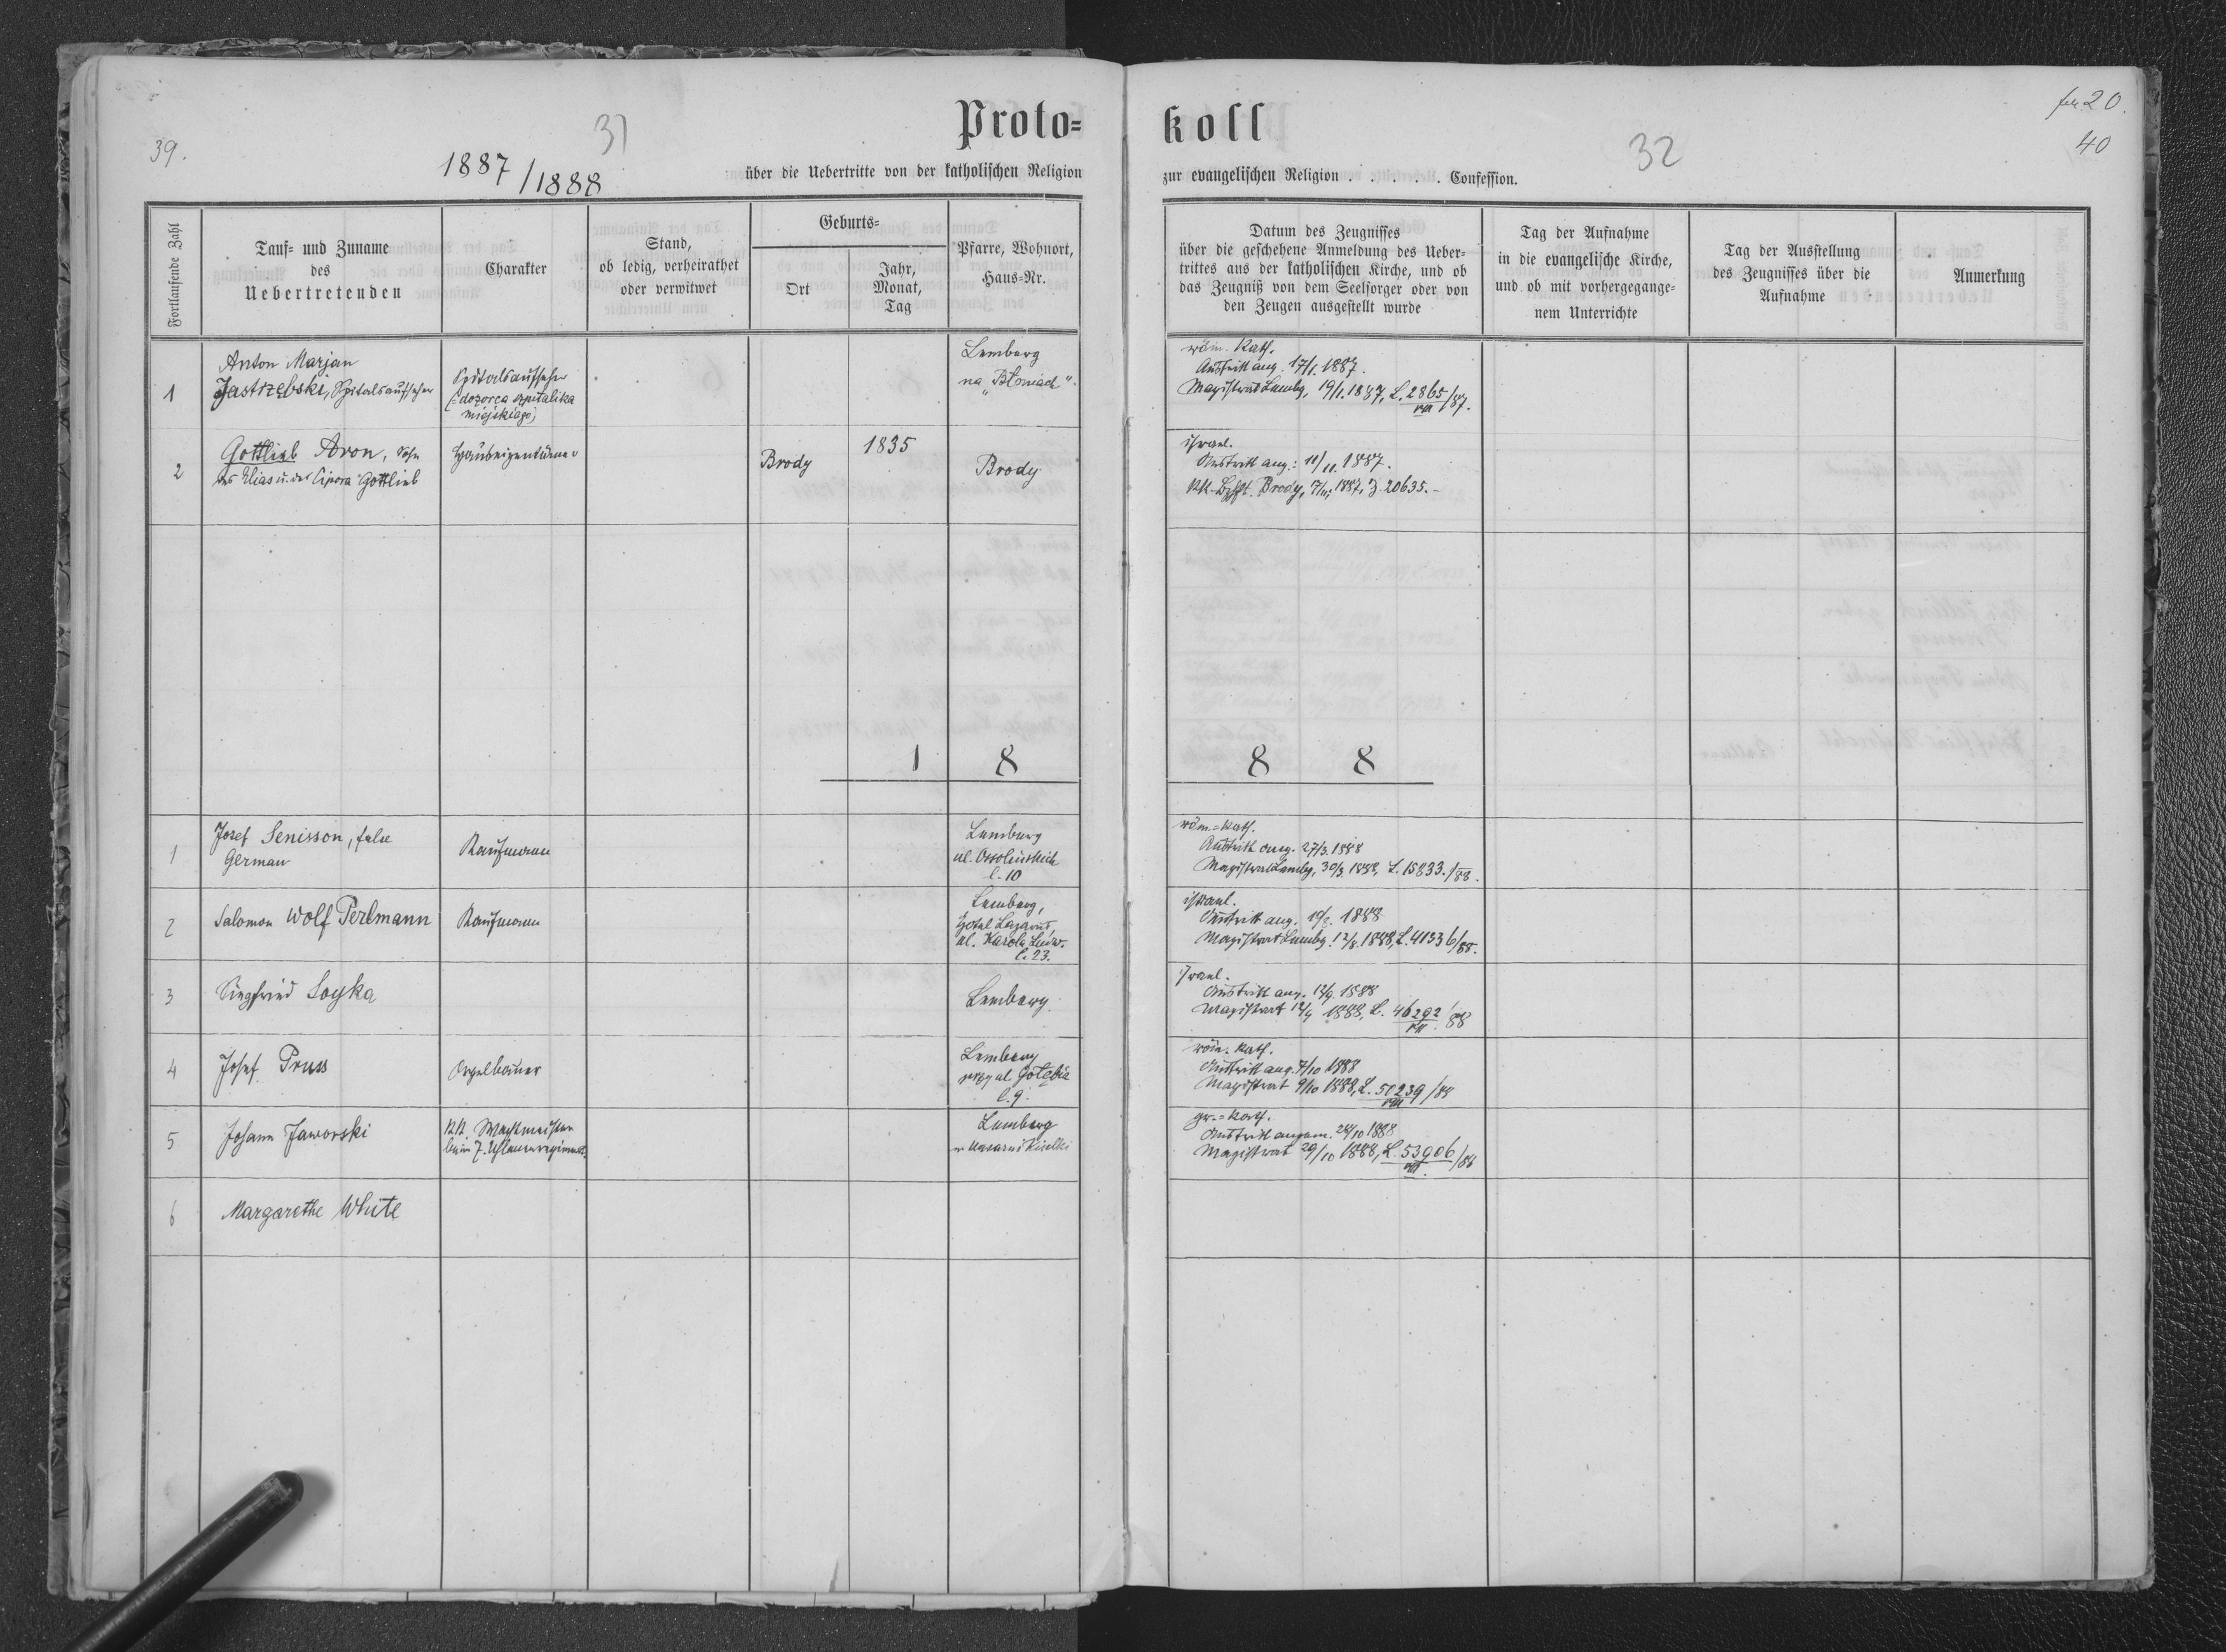 39.
31
1887/1888
Proto=
über die Uebertritte von der katholischen Religion
Fortlaufende Zahl
Tauf= und Zuname
des
Uebertretenden
Charakter
Stand,
ob ledig, verheirathet
oder verwitwet
Geburts=
Ort
Jahr,
Monat,
Tag
Pfarre, Wohnort,
Haus=Nr.
1
Anton Marjan
Jastrzębski, Spitalsaufseher
Spitalsaufseher
(:dozorca szpitalika
miejskiego)
Lemberg
na „Błoniach“.
2
Gottlieb Aron, Sohn
des Elias u. der Cipora Gottlieb
Hauseigentümer
Brody
1835
Brody
1 8
1
Josef Senisson, false
German
Kaufmann
Lemberg
ul. Ossolińskich
l. 10
2
Salomon Wolf Perlmann
Kaufmann
Lemberg,
Hotel Lazarus,
ul. Karola Ludw.
l. 23.
3
Siegfried Soyka
Lemberg.
4
Josef Pruss
Orgelbauer
Lemberg
przy ul Gołębia
l. 9.
5
Johann Jaworski
KK Wachtmeister
beim 7. Uhlanenregiment.
Lemberg
Kisielki
6
Margarethe White
koll
fol. 20.
32
40
zur evangelischen Religion . . . . . Confession.
Datum des Zeugnisses
über die geschehene Anmeldung des Ueber=
trittes aus der katholischen Kirche, und ob
das Zeugniß von dem Seelsorger oder von
den Zeugen ausgestellt wurde
Tag der Aufnahme
in die evangelische Kirche,
und ob mit vorhergegange=
nem Unterrichte
Tag der Ausstellung
des Zeugnisses über die
Aufnahme
Anmerkung
röm. Kath.
Austritt ang. 17/1. 1887.
Magistrat Lembg, 19/1. 1887, L. 2865/87.
VIII
israel.
Austritt ang.: 11/11. 1887.
KK-Bzhft. Brody, 7/11, 1887, Z. 20635.-
8 8
röm.=Kath.
Austritt ang. 27/3. 1888
Magistrat Lembg, 30/3. 1888, L. 15833./88.
israel.
Austritt ang. 10/8. 1888
Magistrat Lembg. 12/8. 1888, L. 41336/88.
israel.
Austritt ang. 12/9. 1888
Magistrat 12/9 1888, L. 46292/88
VIII
röm. Kath.
Austritt ang. 7/10 1888
Magistrat 9/10 1888, L. 50239/88
VIII
gr.=Kath.
Austritt angem. 24/10 1888
Magistrat 29/10 1888, L. 53906/88
VIII.